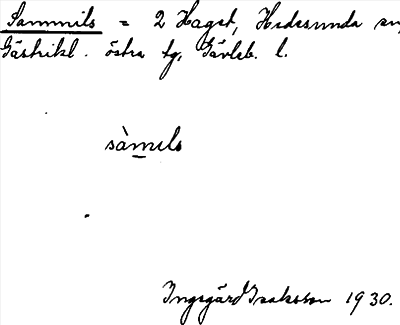 Sammils = 2 Hagst, Hedesunda sn,
Gästrikl. östra tg, Gävleb. l.
sàmils
Ingegärd Isaksson 1930.